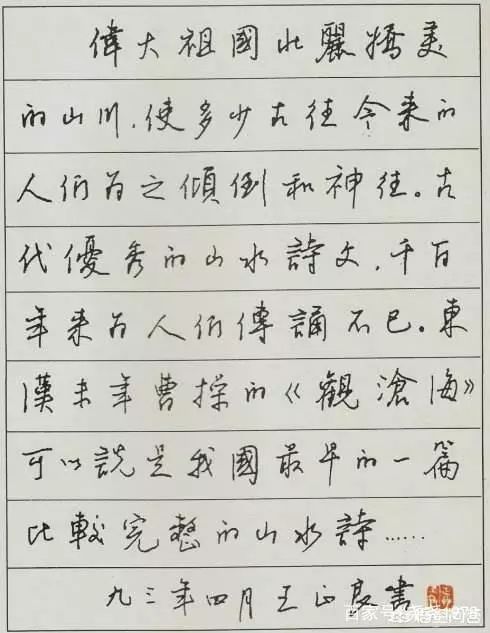 偉大祖國壮麗嬌美
的山川,使多少古往今来的
人们为之傾倒和神往。古
代優秀的山水詩文,千百
年来为人们傳誦不已。東
漢末年曹操的《觀滄海》
可以説是我國最早的一篇
比較完整的山水詩……
九三年四月王正良書
百家号